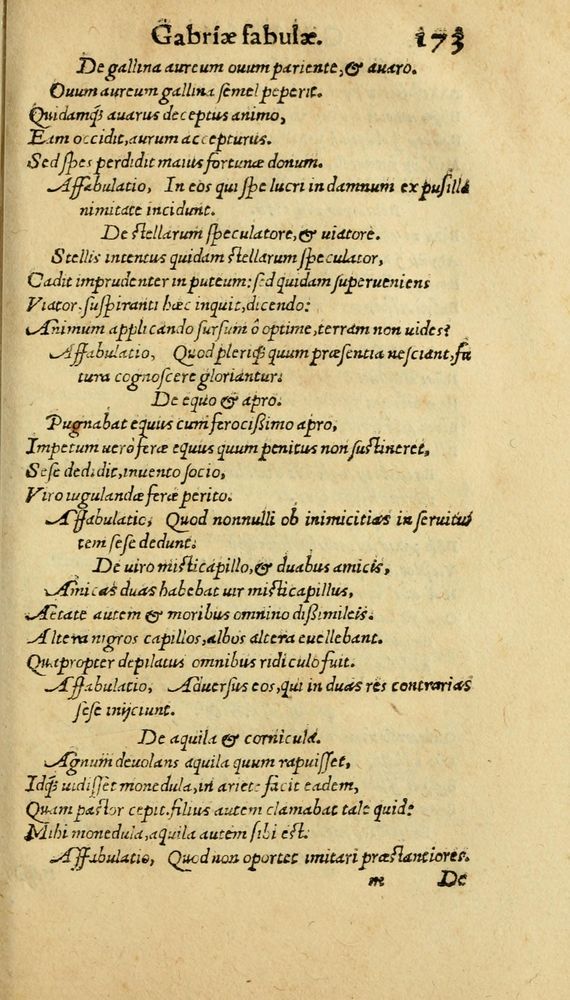 Gabriæ fabulæ. 173
De gallina aureum ouum pariente, & auaro.
Ouum aureum gallina semel peperit.
Quidamq; auarus deceptus animo,
Eam occidit, aurum accepturus.
Sed spes perdidit maius fortunæ donum.
Affabulatio, In eos qui spe lucri in damnum ex pusilla
nimitate incidunt.
De stellarum speculatore, & uiatore.
Stellis intentus quidam stellarum speculator,
Cadit imprudenter in puteum: sed quidam superueniens
Viator. suspiranti hæc inquit, dicendo:
Animum applicando sursum ô optime, terram non uides?
Affabulatio, Quod pleriq; quum præsentia nesciant, fu
tura cognoscere gloriantur.
De equo & apro.
Pugnabat equus cum ferocissimo apro,
Impetum uerò feræ equus quum penitus non sustineret,
Sese dedidit, inuento socio,
Viro iugulandæ feræ perito.
Affabulatio, Quod nonnulli ob inimicitias in seruitu
tem sese dedunt.
De uiro misticapillo, & duabus amicis,
Amicas duas habebat uir misticapillus,
Aetate autem & moribus omnino dissimileis.
Altera nigros capillos, albos altera euellebant.
Quapropter depilatus omnibus ridiculo fuit.
Affabulatio, Aduersus eos, qui in duas res contrarias
sese inijciunt.
De aquila & cornicula.
Agnum deuolans aquila quum rapuisset,
Idq; uidisset monedula, in ariete facit eadem,
Quam pastor cepit. filius autem clamabat tale quid:
Mihi monedula, aquila autem sibi est.
Affabulatio, Quod non oportet imitari præstantiores.
m De